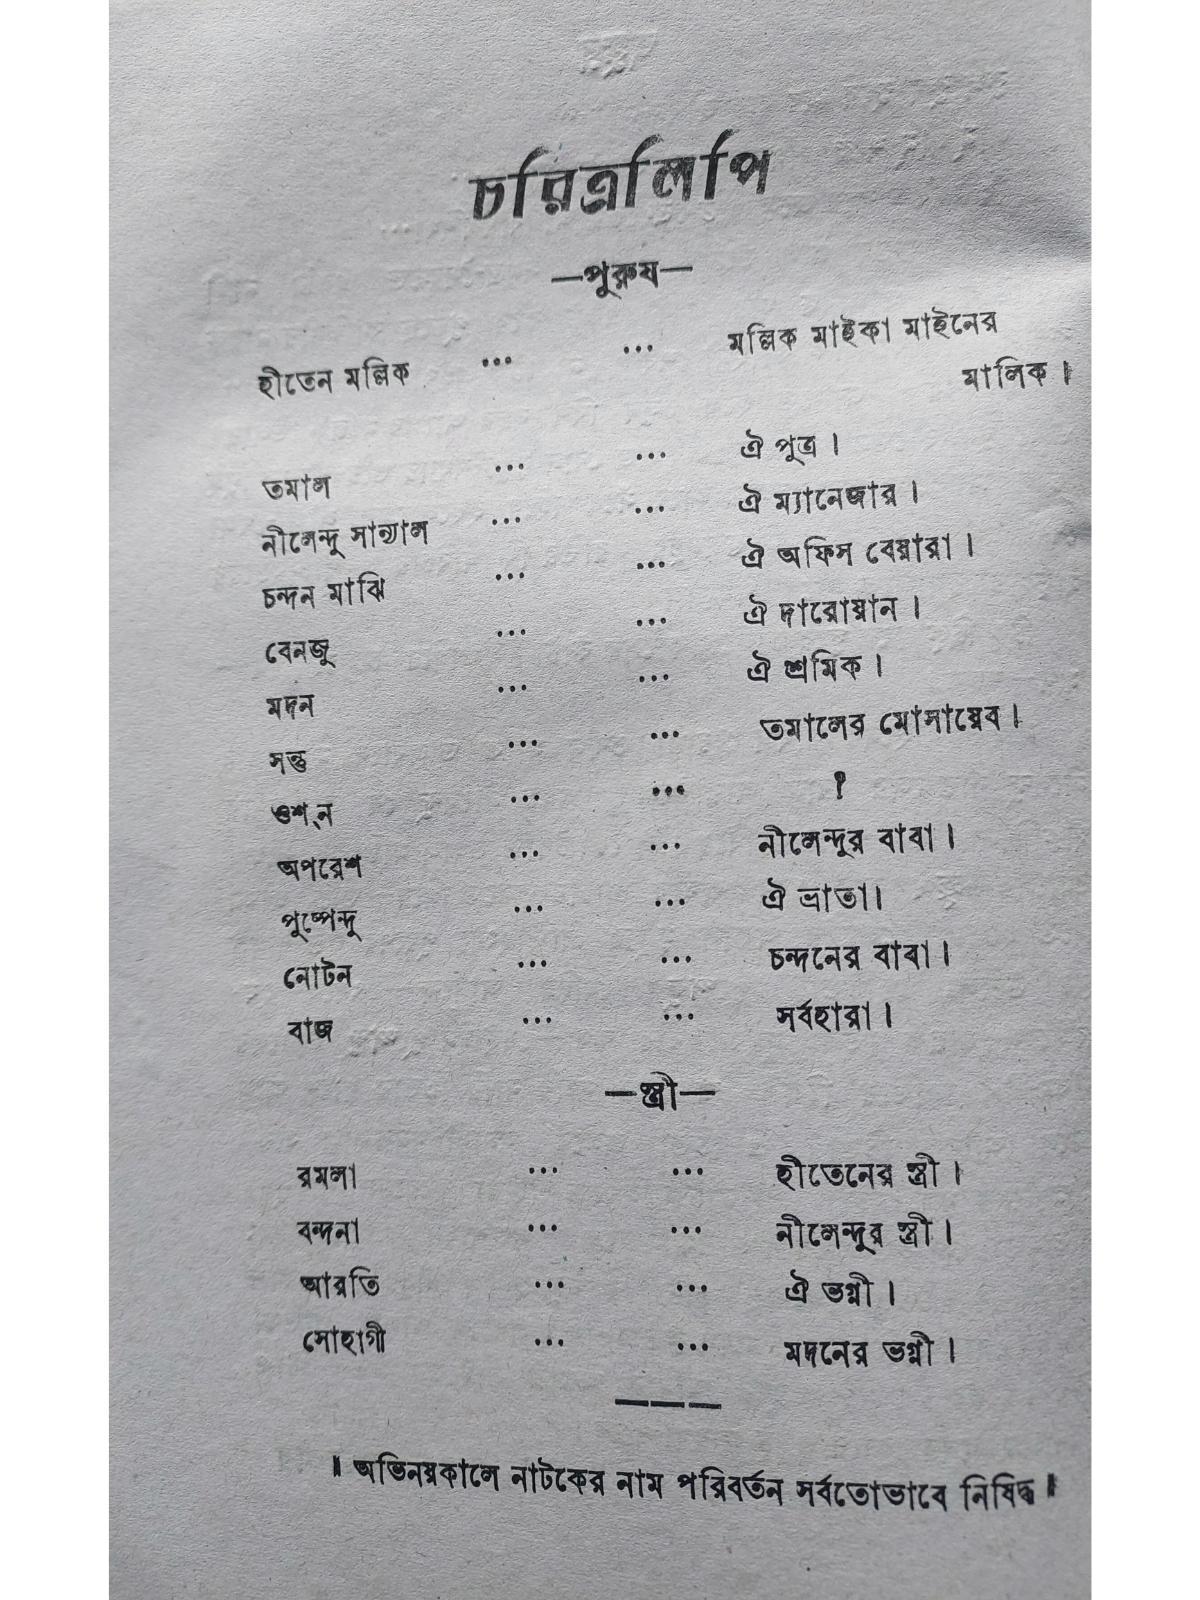 চরিত্রলিপি
—পুরুষ—
হীতেন মল্লিক ... ... মল্লিক মাইকা মাইনের
মালিক।
তমাল ... ... ঐ পুত্র।
নীলেন্দু সান্যাল ... ... ঐ ম্যানেজার।
চন্দন মাঝি ... ... ঐ অফিস বেয়ারা।
বেনজু ... ... ঐ দারোয়ান।
মদন ... ... ঐ শ্রমিক।
সন্তু ... ... তমালের মোসায়েব।
গুশ্‌ন ... ... ?
অপরেশ ... ... নীলেন্দুর বাবা।
পুষ্পেন্দু ... ... ঐ ভ্রাতা।
নোটন ... ... চন্দনের বাবা।
বাজ ... ... সর্বহারা।
—স্ত্রী—
রমলা ... ... হীতেনের স্ত্রী।
বন্দনা ... ... নীলেন্দুর স্ত্রী।
আরতি ... ... ঐ ভগ্নী।
সোহাগী ... ... মদনের ভগ্নী।
———
॥ অভিনয়কালে নাটকের নাম পরিবর্তন সর্বতোভাবে নিষিদ্ধ ॥